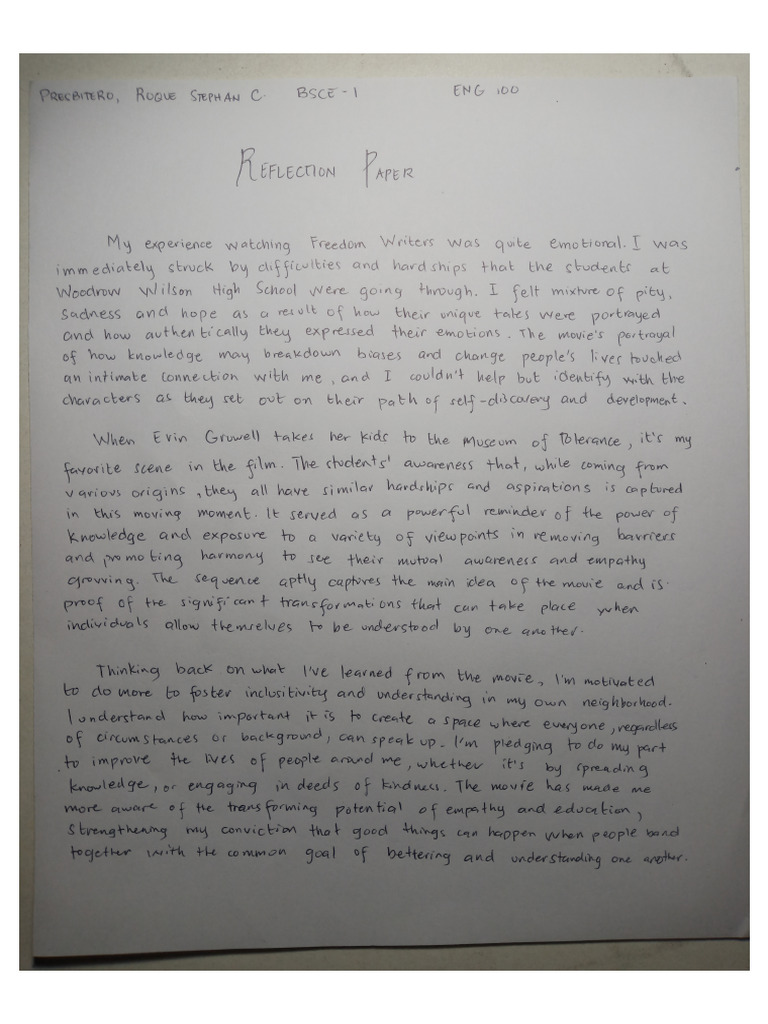 PRECBITERO, ROQUE STEPHAN C. BSCE-1 ENG 100
REFLECTION PAPER
My experience watching Freedom Writers was quite emotional. I was
immediately struck by difficulties and hardships that the students at
Woodrow Wilson High School were going through. I felt mixture of pity,
sadness and hope as a result of how their unique tales were portrayed
and how authentically they expressed their emotions. The movie's portrayal
of how knowledge may breakdown biases and change people's lives touched
an intimate connection with me, and I couldn't help but identify with the
characters as they set out on their path of self-discovery and development.
When Erin Gruwell takes her kids to the Museum of Tolerance, it's my
favorite scene in the film. The students' awareness that, while coming from
various origins, they all have similar hardships and aspirations is captured
in this moving moment. It served as a powerful reminder of the power of
knowledge and exposure to a variety of viewpoints in removing barriers
and promoting harmony to see their mutual awareness and empathy
growing. The sequence aptly captures the main idea of the movie and is
proof of the significant transformations that can take place when
individuals allow themselves to be understood by one another.
Thinking back on what I've learned from the movie, I'm motivated
to do more to foster inclusitivity and understanding in my own neighborhood.
I understand how important it is to create a space where everyone, regardless
of circumstances or background, can speak up. I'm pledging to do my part
to improve the lives of people around me, whether it's by spreading
knowledge, or engaging in deeds of kindness. The movie has made me
more aware of the transforming potential of empathy and education,
strengthening my conviction that good things can happen when people band
together with the common goal of bettering and understanding one another.